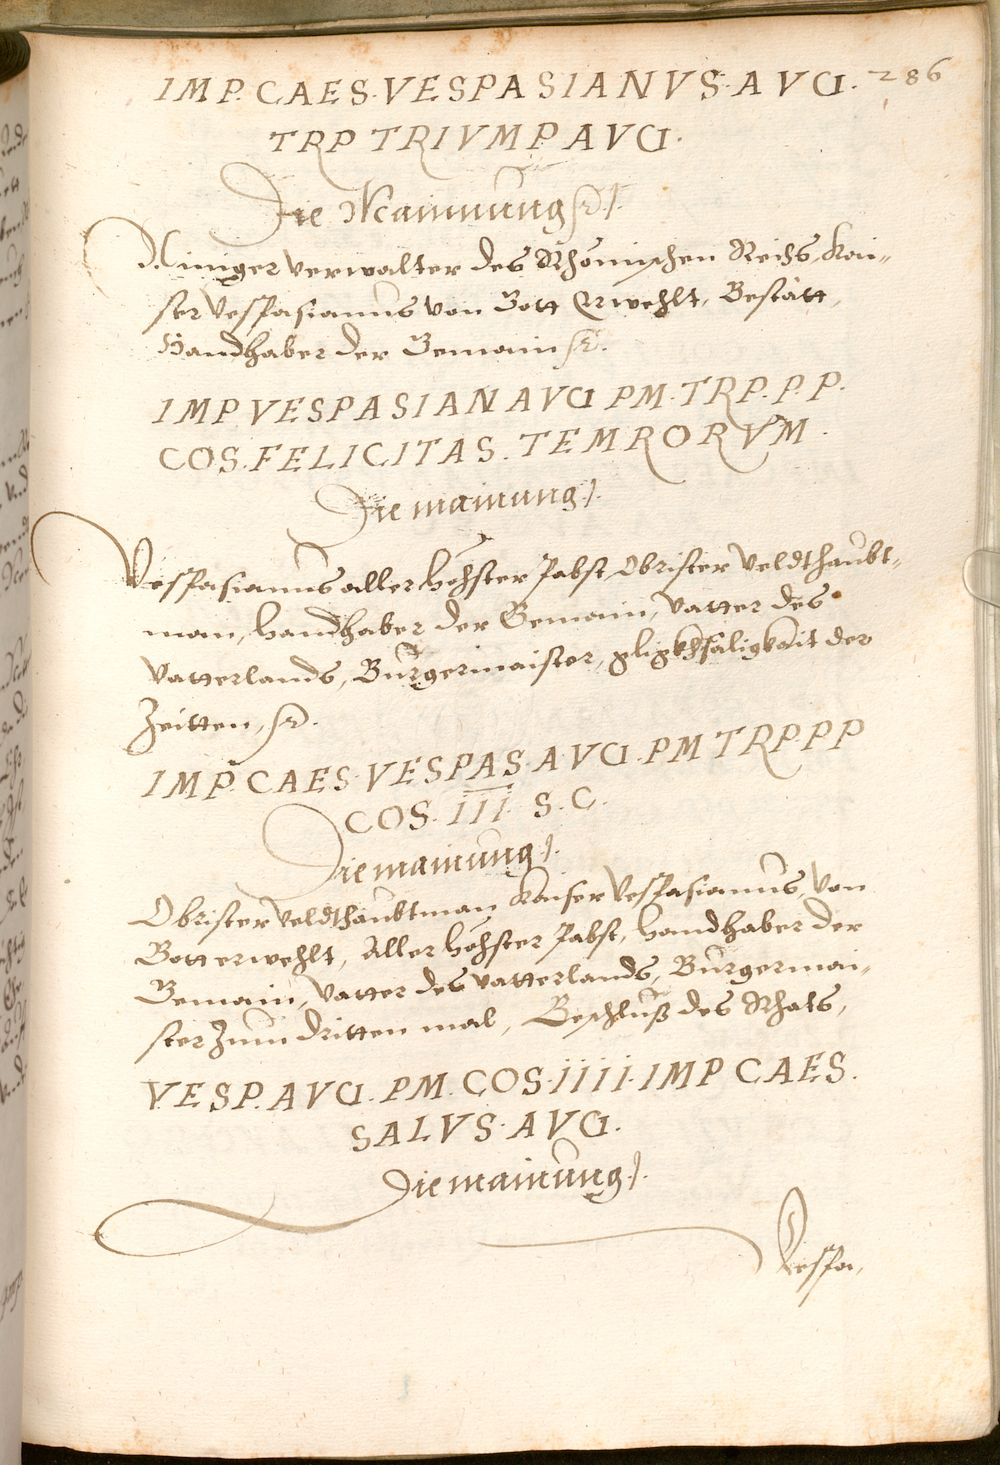 IMP. CAES. VESPASIANVS. AVG. 286
TRP TRIVMP. AVG.
Die Mainnung
Ainiger verwalter des Rhömischen Reichs, Kai-
ser Vespasianus von Gott Erwehlt, Bestätt,
Handhaber der Gemain
IMP VESPASIAN AVG PM. TRP. P. P.
COS. FELICITAS. TEMRORVM.
Die mainung
Vespasianus aller höhster Pabst, Obrister Veldthaubt-
man, handhaber der Gemain, Vatter des
Vatterlands, Burgermaister, glickhsäligkait der
Zeitten,
IMP. CAES. VESPAS. AVG. PM TRP. P P
COS. III S. C.
Die mainung
Obrister Veldthaubtman Kaiser Vespasianus, von
Gott erwehlt, Aller höhster Pabst, handhaber der
Gemain, Vatter des Vatterlands, Burgermai-
ster Zum dritten mal, Beschluß des Rhats,
VESP. AVG. PM. COS. IIII. IMP CAES.
SALVS. AVG.
Die mainung
Vespa,